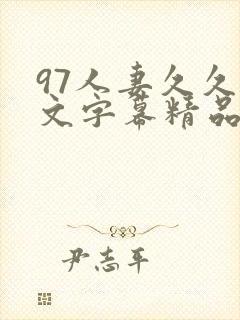 97人妻久久
文字幕精品
尹志平